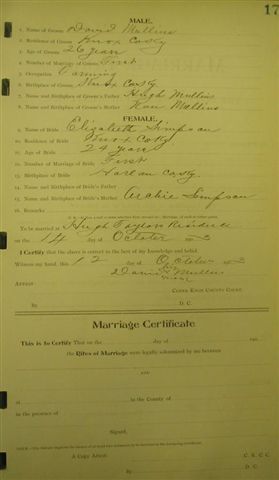 17
MALE.
1. Name of Groom David Mullins
2. Residence of Groom Knox Coty
3. Age of Groom 26 years
4. Number of Marriage of Groom First
5. Occupation Farming
6. Birthplace of Groom Knox Coty
7. Name and Birthplace of Groom's Father Hugh Mullins
8. Name and Birthplace of Groom's Mother Mullins
FEMALE.
9. Name of Bride Elizabeth Simpson
10. Residence of Bride Knox Coty
11. Age of Bride 24 years
12. Number of Marriage of Bride First
13. Birthplace of Bride Harlan Coty
14. Name and Birthplace of Bride's Father
15. Name and Birthplace of Bride's Mother Archie Simpson
16. Remarks
To be married at Hugh Taylors Residence
on the 14 day of October
I Certify that the above is correct to the best of my knowledge and belief.
Witness my hand, this 12 day of October
David Mullins
Attest:
Clerk Knox County Court.
By D. C.
Marriage Certificate
This is to Certify That on the day of
the Rites of Marriage were legally solemnized by me between
and
at in the County of
in the presence of
Signed,
A Copy Attest: C. K. C. C.
By D. C.